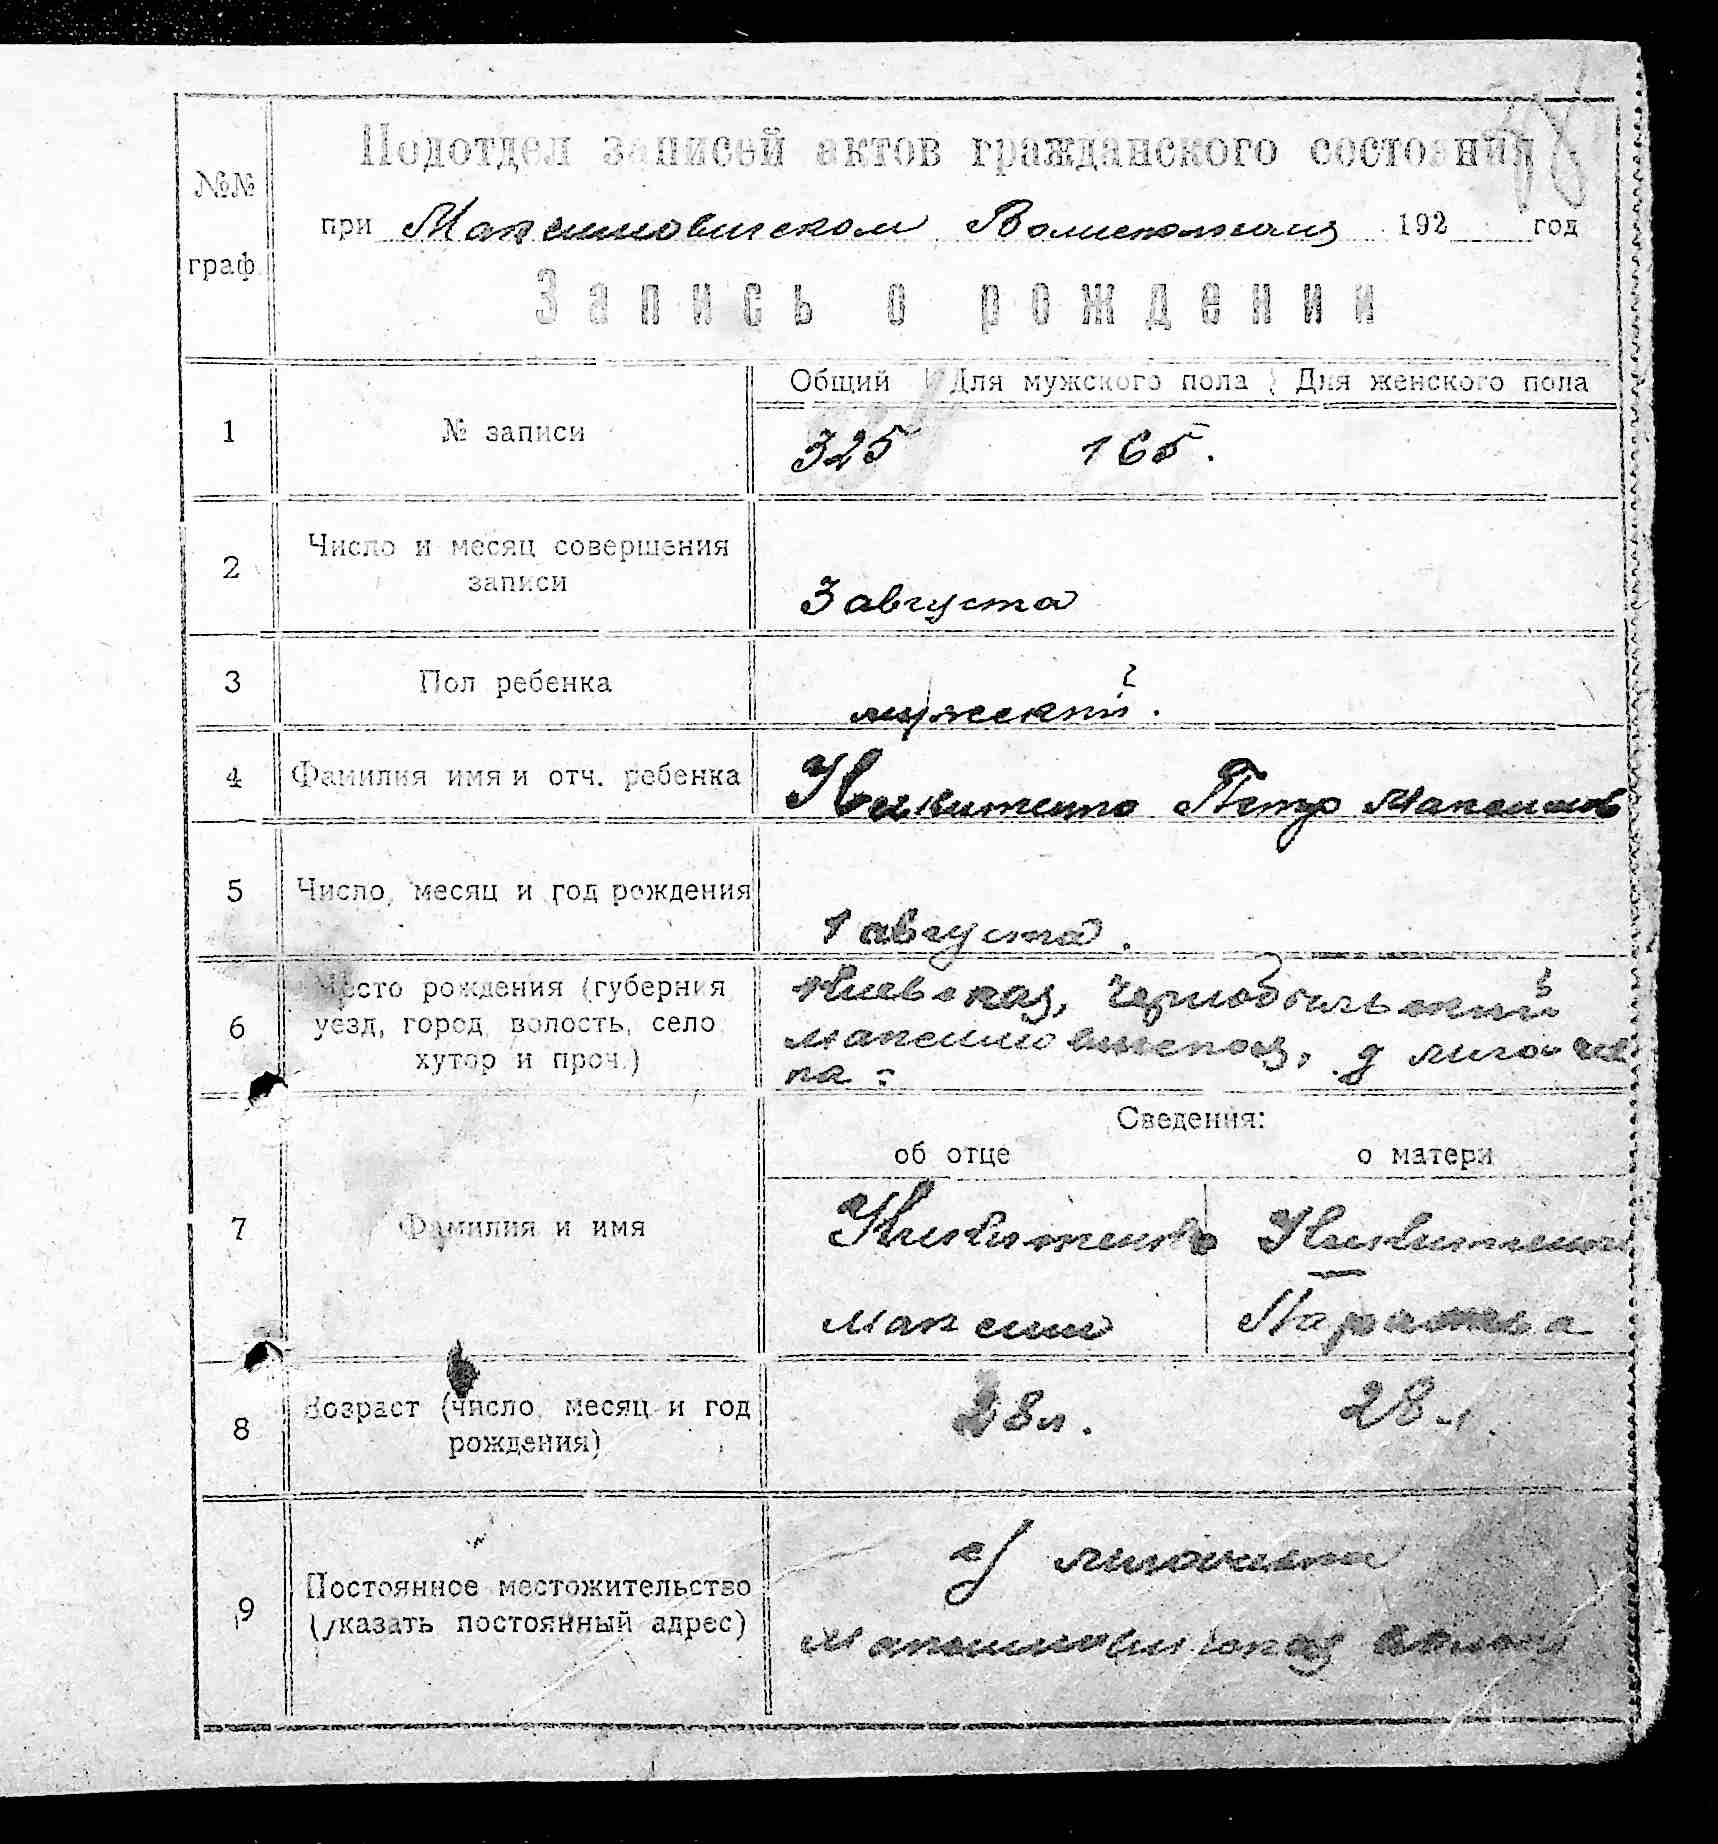 №№
граф.
Подотдел записей актов гражданского состояния
при Максимовическом Волисполкоме 192 год
Запись о рождении
Общий Для мужского пола Для женского пола
1 № записи 325 165.
2 Число и месяц совершения
записи
3 августа
3 Пол ребенка мужский.
4 Фамилия имя и отч. ребенка Никитенко Петр Максимов
5 Число, месяц и год рождения
1 августа.
6 Место рождения (губерния
уезд, город, волость, село
хутор и проч.)
Киевская, Чернобыльский
Максимовическая, д
ка
Сведения:
об отце о матери
7 Фамилия и имя Никитенко Никитенко
Максим Параскева
8 Возраст (число, месяц и год
рождения)
28 л. 28 л.
9 Постоянное местожительство
(указать постоянный адрес)
Максимовическая волость